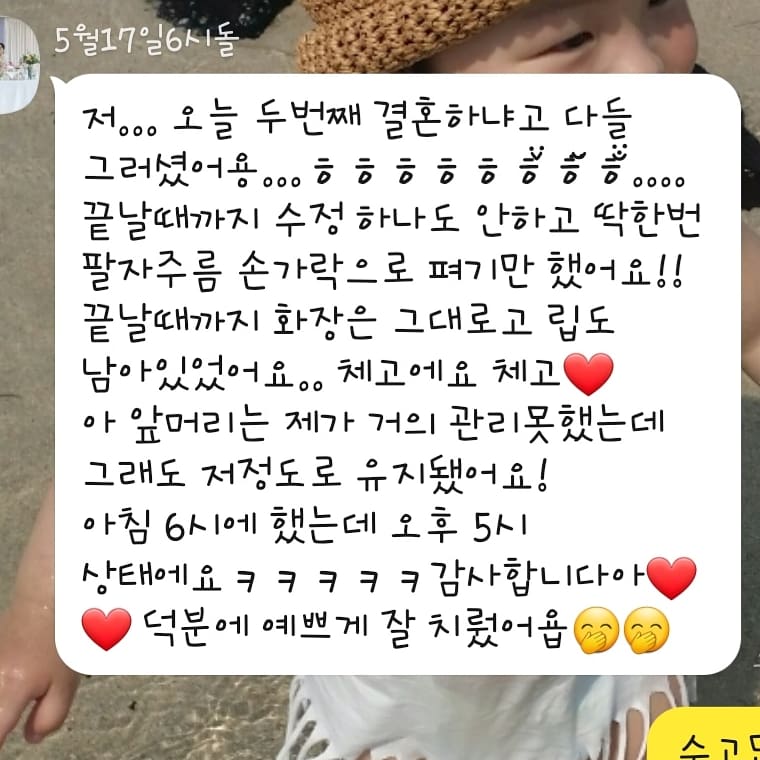 5월17일6시돌
저... 오늘 두번째 결혼하냐고 다들
그러셨어용...ㅎㅎㅎㅎㅎㅎ̆̈ㅎ̆̈ㅎ̆̈....
끝날때까지 수정 하나도 안하고 딱한번
팔자주름 손가락으로 펴기만 했어요!!
끝날때까지 화장은 그대로고 립도
남아있었어요.. 체고에요 체고❤️
아 앞머리는 제가 거의 관리못했는데
그래도 저정도로 유지됐어요!
아침 6시에 했는데 오후 5시
상태에요 ㅋㅋㅋㅋㅋ감사합니다아❤️
❤️ 덕분에 예쁘게 잘 치뤘어욥🤭🤭
수고